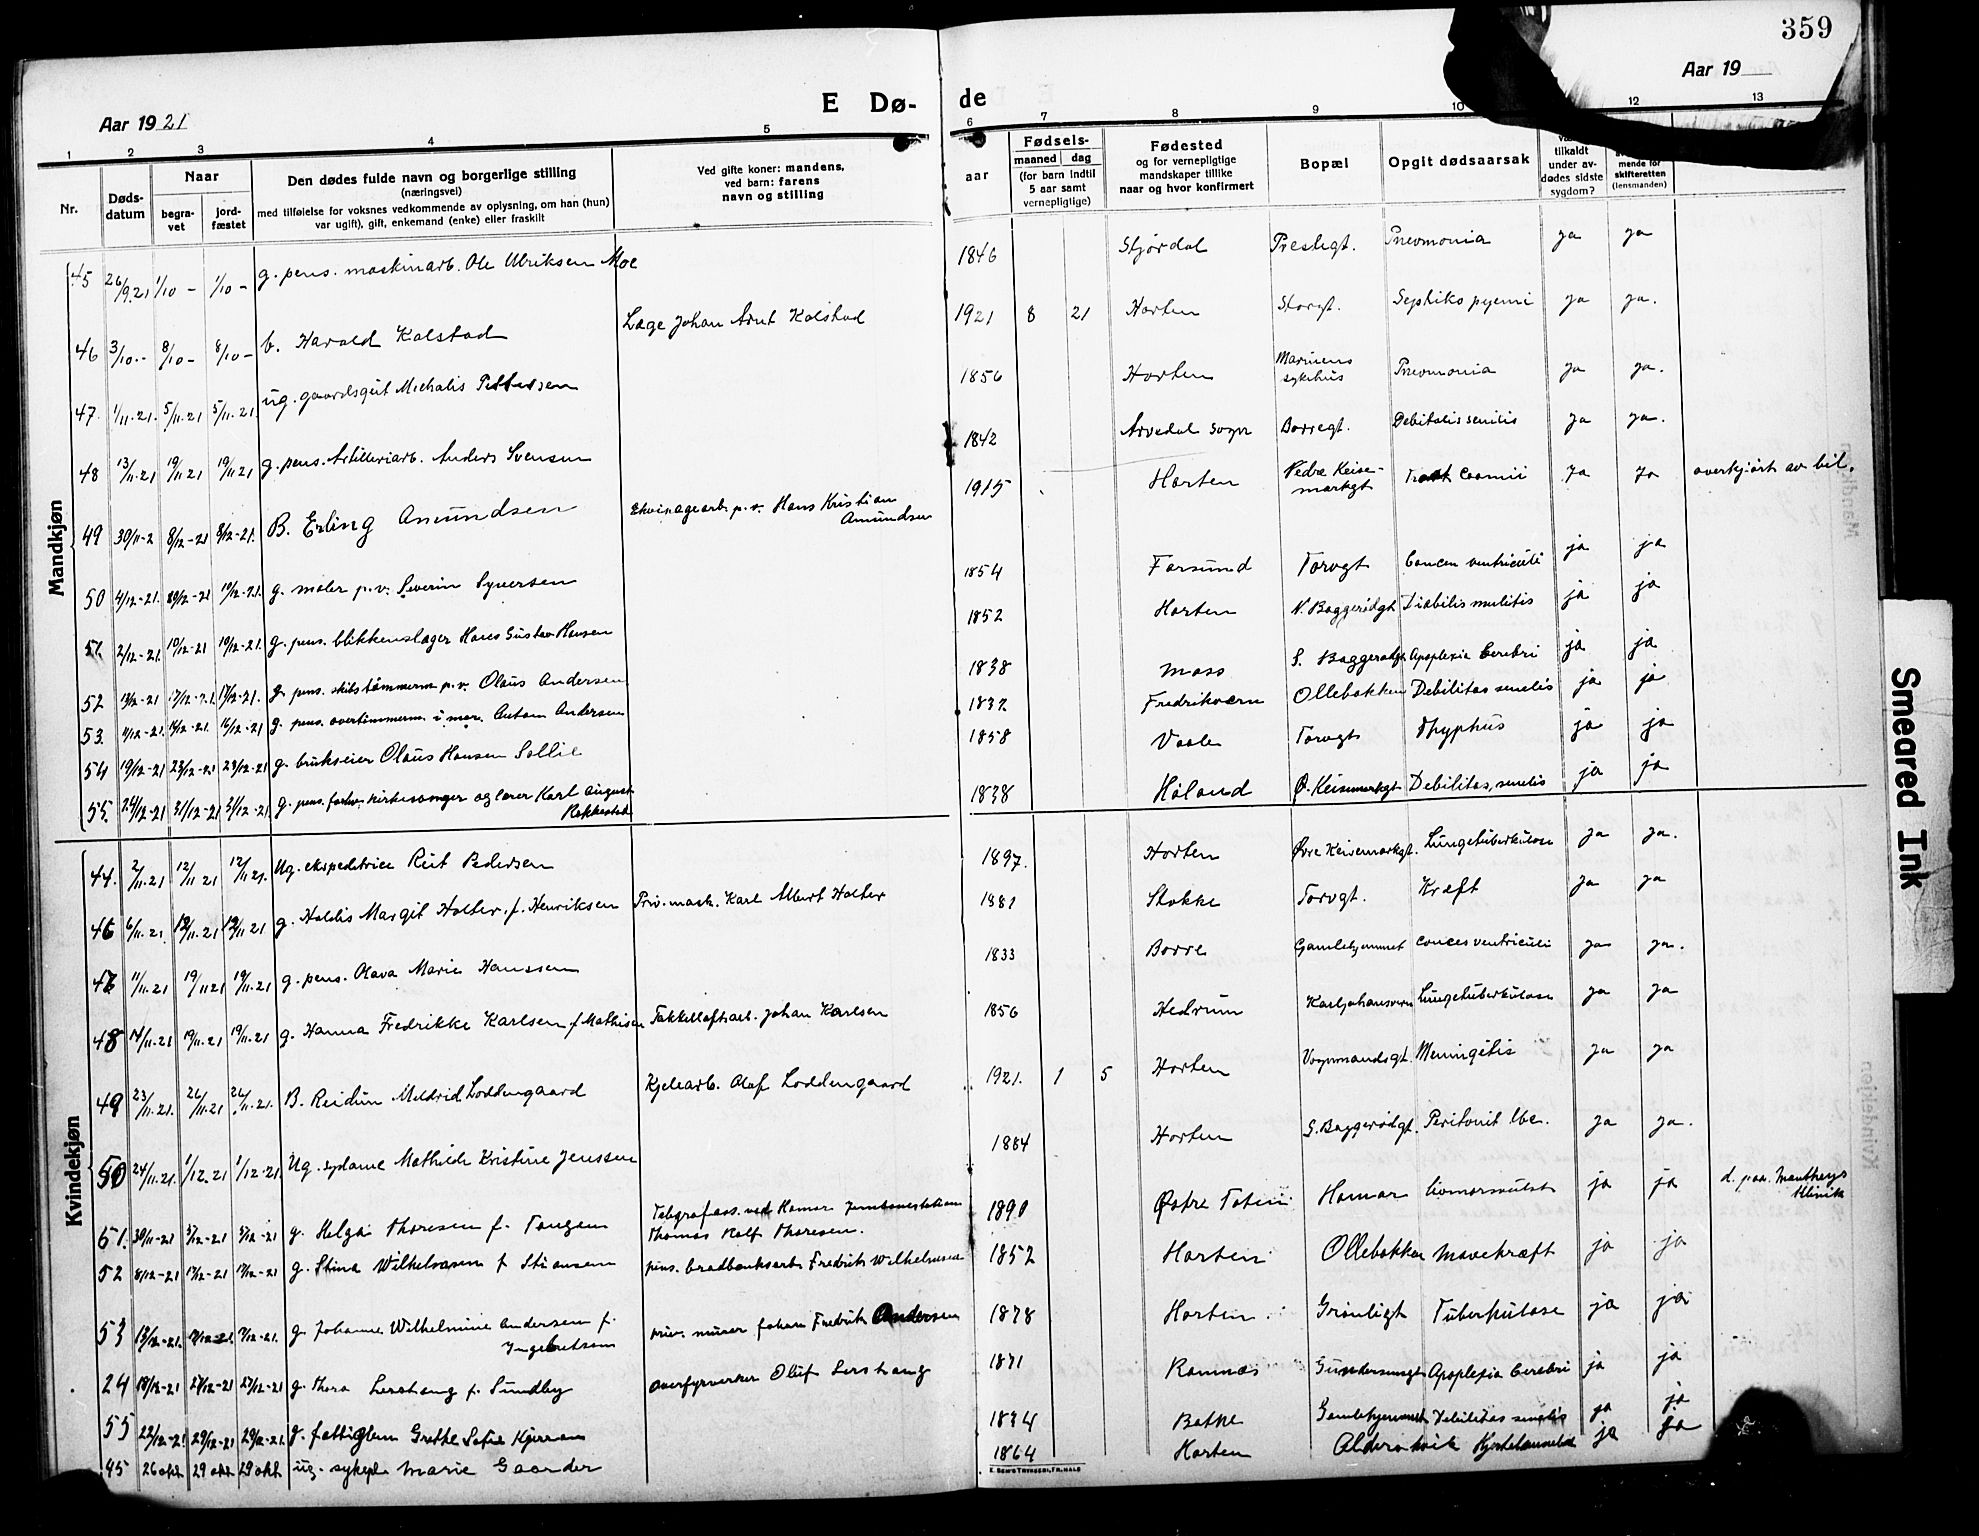 359
Aar 1921
E Dø-
de
Aar 19
1 2 3 4 5 6 7 8 9 10 12 13
Nr.
Døds-
datum
Naar
begra-
vet
jord-
fæstet
Den dødes fulde navn og borgerlige stilling
(næringsvei)
med tilføielse for voksnes vedkommende av oplysning, om han (hun)
var ugift), gift, enkemand (enke) eller fraskilt
Ved gifte koner: mandens,
ved barn: farens
navn og stilling
aar
Fødsels-
maaned dag
(for barn indtil
5 aar samt
vernepligtige)
Fødested
og for vernepligtige
mandskaper tillike
naar og hvor konfirmert
Bopæl
Opgit dødsaarsak
tilkaldt
under av-
dødes sidste
sygdom?
mende for
skifteretten
(lensmanden)
Mandkjøn
45 26/9.21 1/10 – 1/10 – g. pens. maskinarb. Ole Ulriksen Moe 1846 Stjørdal Prestegt. Pneomonia ja ja
46 3/10 -- 8/10 – 8/10 – b. Harald Kolstad Læge Johan Arnt Kolstad 1921 8 21 Horten Storgt. Septiko pyemi ja ja.
47. 1/11.21. 5/11.21 5/11.21. ug. gaardsgut Michalis Pettersen 1856 Horten Marinens
sykehus Pneomonia ja ja.
48 13/11.21 19/11 21 19/11 21 g. pens. Artilleriarb. Anders Svensen 1842 Arvedal sogn Borregt. Debitalis senilis ja ja.
49 30/11-2 8/12-21 8/12-21. B. Erling Amundsen Ekvipagearb. p.v. Hans Kristian
Amundsen 1915 Horten Nedre Keise-
markgt ja ja overkjørt av bil.
50 4/12-21. 10/12-21 10/12-21. g. maler p.v. Severin Syversen 1854 Farsund Torvgt Cancer ventriculi ja ja
51. 2/12-21. 10/12-21 10/12-21. g. pens. blikkenslager Hans Gustav Hansen 1852 Horten N. Baggerødgt Diabilis mulitis ja ja
52 13/12-21 17/12-21 17/12-21. g. pens. skibstømmerm p.v. Olaus Andersen 1838 Moss S. Baggerødgt Apoplexia Cerebri ja ja
53. 11/12-21. 16/12-21. 16/12-21 g. pens. overtømmerm. i mar. Anton Andersen 1837 Fredriksværn Ollebakken Debilitas senelis ja ja
54 19/12-21 23/12-21 23/12-21 g. brukseier Olaus Hansen Sollie 1858 Vaale Torvgt Thyphus ja ja
55. 24/12-21 31/12-21 31/12-21. g. pens. forhv. kirkesanger og lærer Karl August
Rakkestad 1838 Høland Ø. Keisemarkgt Debilitas senelis ja ja
Kvindekjøn
44. 2/11.21 12/11 21 12/11 21. Ug. ekspeditrice Rut Pedersen 1897. Horten Øvre Keisemarkgt. Lungetuberkulose ja ja.
46 6/11.21. 12/11.21 12/11 21 g. Haldis Margit Holter. f. Henriksen Priv. mask. Karl Albert Holter 1881 Stokke Torvgt. Kræft ja ja
47 11/11.21 19/11 21 19/11.21 g. pens. Olava Marie Hanssen 1833 Borre Gamlehjemmet cances ventriculi ja ja.
48 14/11.21 19/11.21 19/11.21 g. Hanna Fredrikke Karlsen f. Mathisen Takkelloftsarb. Johan Karlsen 1856 Hedrum Karljohansvern Lungetuberkulose ja ja
49 23/11.21. 26/11.21 26/11.21. B. Reidun Mildrid Loddengaard Kjelearb. Olaf Loddengaard 1921. 1 5 Horten Vognmandsgt. Meningitis ja ja
50 24/11.21. 1/12.21 1/12-21 Ug. sydame Mathilde Kristine Jenssen 1884 Horten S. Baggerødgt. Peritonit tbc. ja ja.
51. 30/11-21 5/12-21 5/12-21 g. Helga Thoresen f. Tangen Telegrafass. ved Hamar jernbanestation
Thomas Rolf Thoresen. 1890 Østre Toten Hamar ja ja d. paa Mantheys
klinik
52 8/12-21 13/12-21 13/12-21 g. Stina Wilhelmsen f Stiansen pens. bradbenksarb Fredrik Wilhelmsen 1852 Horten Ollebakken Mavekræft ja ja
53 13/12-21. 17/12-21. 17/12-21. g. Johanne Wilhelmine Andersen f.
Ingebretsen priv. murer Johan Fredrik Andersen 1878 Horten Grønligt Tuberkulose ja ja
24 18/12-21 27/12-21 27/12-21 g. Thora Lerstang f. Sundby overfyrverker Oluf Lerstang 1871 Ramnæs Gundersensgt Apoplexia Cerebri ja ja
55 22/12-21 29/12-21 29/12-21. g. fattiglem Grethe Sofie 1834 Botne Gamlehjemmet Debilitas senelis ja ja
45 26 okt 29 okt 29 okt ug. sykepl Marie Gaarder 1864 Horten ja ja
Smeared Ink